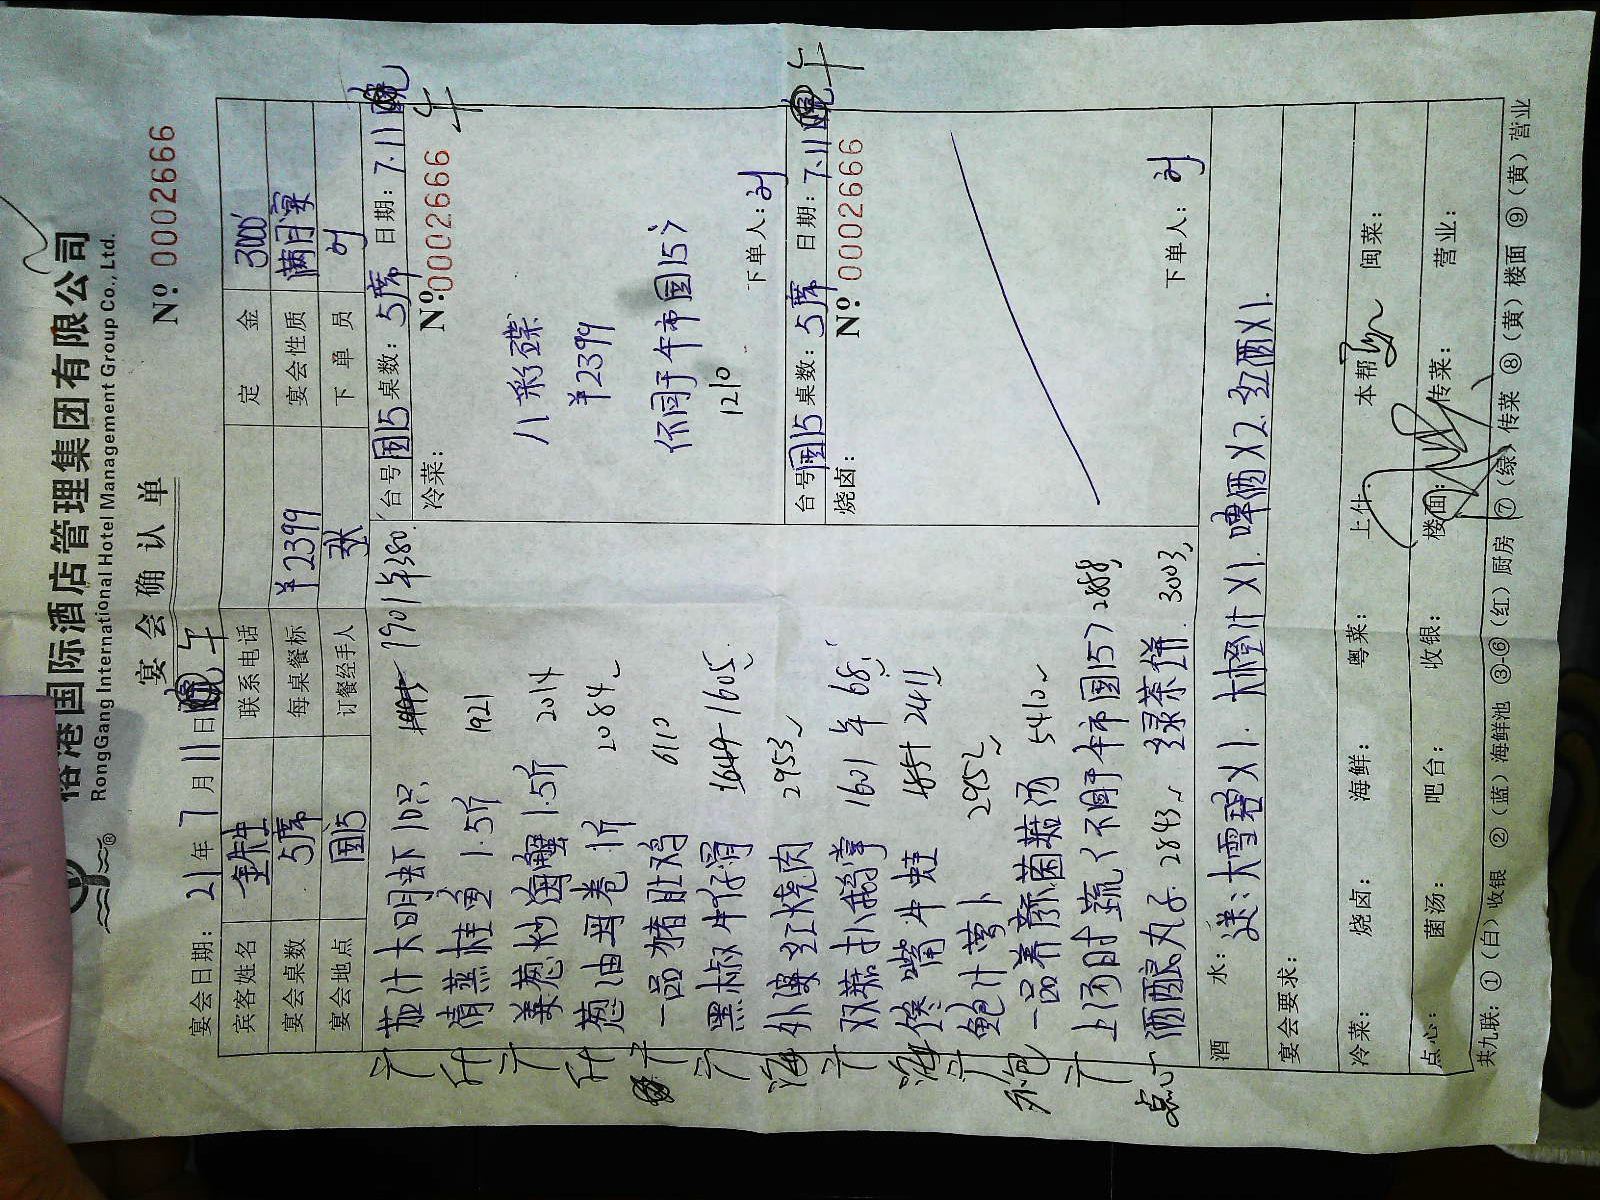 港国际酒店管理集团有限公司
RongGang International Hotel Management Group Co., Ltd.
宴会确认单
№ 0002666
宴会日期: 21年7月11日 午
宾客姓名 联系电话 定金 3000
宴会桌数 5席 每桌餐标 ¥2399 宴会性质 满月宴
宴会地点 国15 订餐经手人 张 下单员 刘
茄汁大明虾10只 1901 半380
清蒸桂鱼1.5斤 1921
姜葱炒海蟹1.5斤 2014
葱油母卷1斤 2084
一品猪肚鸡 6110
黑椒牛仔骨 1605
外婆红烧肉 2953
双菇扒鹅掌 1601 半68
馋嘴牛蛙 2411
鲍汁萝卜 2952
一品养颜菌菇汤 5410
上汤时蔬(不同于午市国15) 2888
酒酿丸子 2843 绿茶饼 3003
台号 国15 桌数: 5席 日期: 7.11 午
冷菜:
№ 0002666
八彩碟
¥2399
(不同于午市国15)
1210
下单人: 刘
台号: 国15 桌数: 5席 日期: 7.11 午
烧卤:
№ 0002666
下单人: 刘
酒水: 送:大雪碧X1. 大橙汁X1. 啤酒X2. 红酒X1.
宴会要求:
冷菜: 烧卤: 海鲜: 粤菜: 上什: 本帮: 闽菜:
点心: 菌汤: 吧台: 收银: 楼面: 传菜: 营业:
共九联: ①(白)收银 ②(蓝)海鲜池 ③-⑥(红)厨房 ⑦(绿)传菜 ⑧(黄)楼面 ⑨(黄)营业